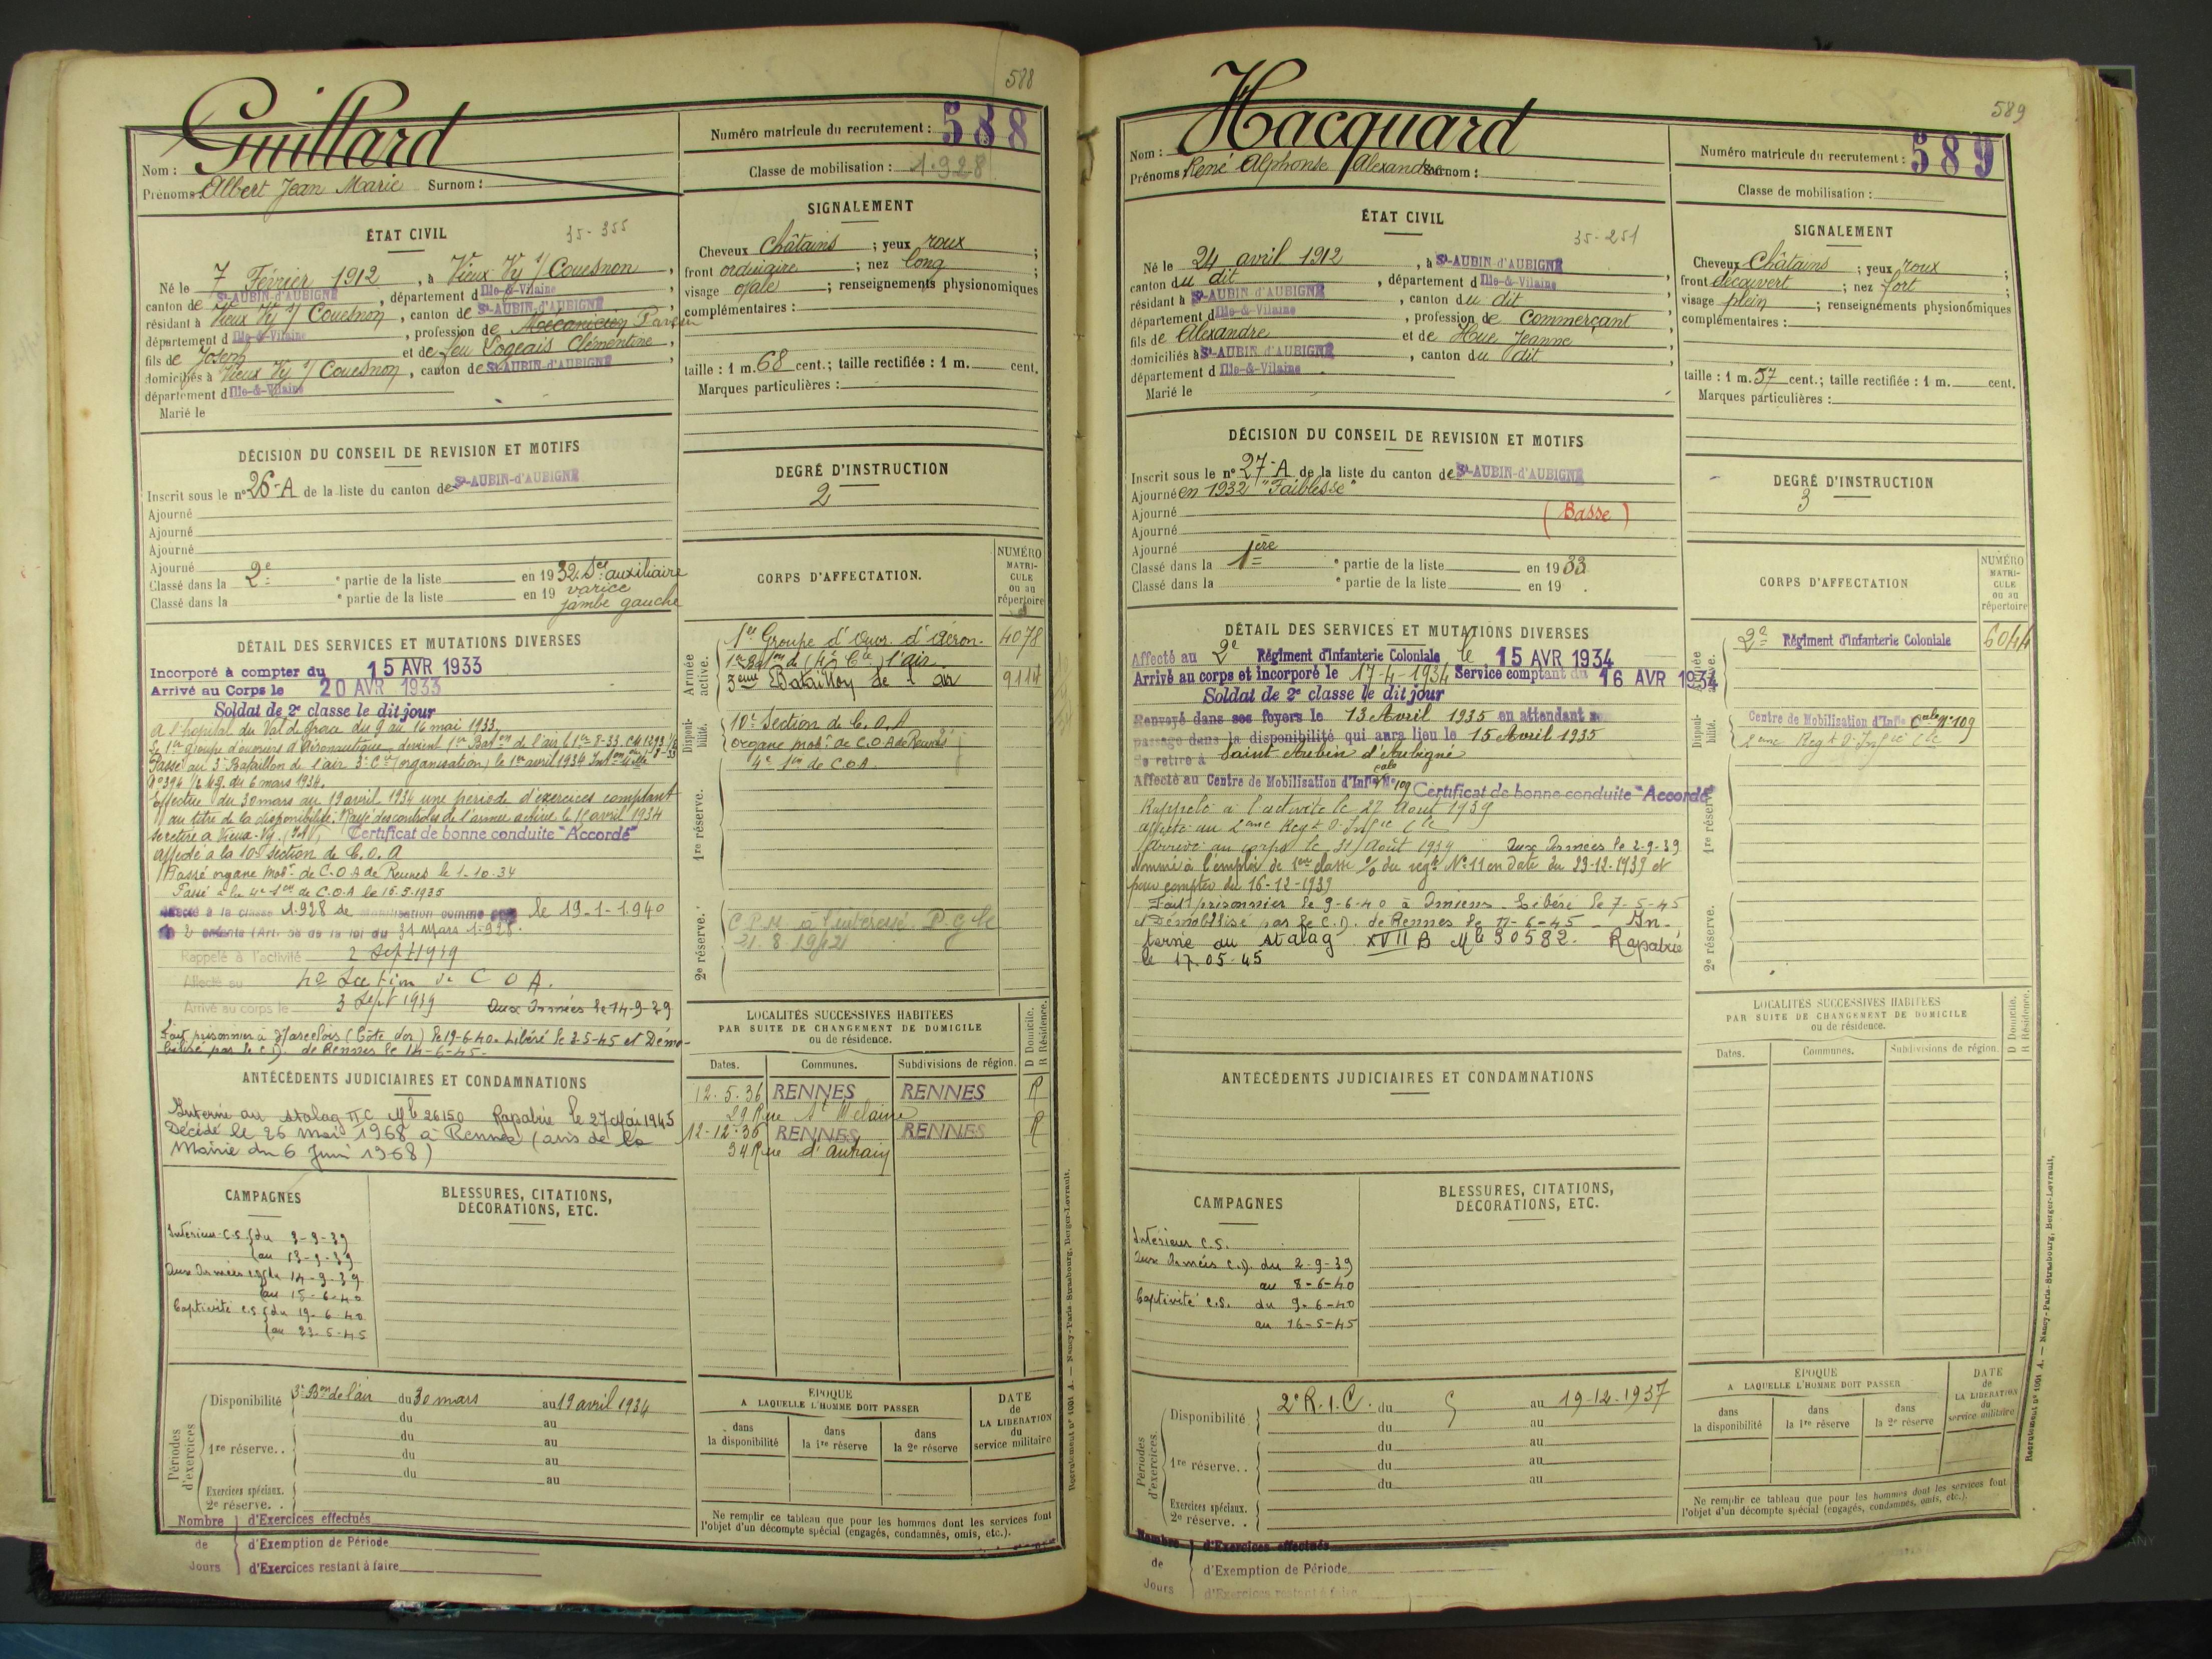 588
Guillard
Nom :
Prénoms : Albert Jean Marie Surnom :
Numéro matricule du recrutement : 588
Classe de mobilisation : 1.928
ÉTAT CIVIL
35-355
Né le 7 Février 1912, à Vieux Vy s/ Couesnon,
canton de St-AUBIN-d'AUBIGNÉ, département d Ille-&-Vilaine,
résidant à Vieux Vy s/ Couesnon, canton de St-AUBIN-d'AUBIGNÉ,
département d Ille-&-Vilaine, profession de Mécanicien
fils de Joseph et de feu Logeais Clémentine,
domiciliés à Vieux Vy s/ Couesnon, canton de St-AUBIN-d'AUBIGNÉ,
département d Ille-&-Vilaine
Marié le
SIGNALEMENT
Cheveux Châtains ; yeux roux ;
front ordinaire ; nez long ;
visage ovale ; renseignements physionomiques
complémentaires :
taille : 1 m. 68 cent. ; taille rectifiée : 1 m. cent.
Marques particulières :
DÉCISION DU CONSEIL DE REVISION ET MOTIFS
Inscrit sous le n° 26-A de la liste du canton de St-AUBIN-d'AUBIGNÉ
Ajourné
Ajourné
Ajourné
Ajourné
Classé dans la 2e e partie de la liste en 1932. Sce auxiliaire
Classé dans la e partie de la liste en 19 varice
jambe gauche
DEGRÉ D'INSTRUCTION
2
CORPS D'AFFECTATION.
NUMÉRO MATRI-CULE ou au répertoire
Armée active.
1er Groupe d'Ouv. d'Aéron. 4078
1er Baton de (4e Cie) l'air
3eme Bataillon de l'air 9114
Disponi-bilité.
10e Section de C.O.A
organe mobr de C.O.A de Rennes
4e Son de C.O.A
1re réserve.
2e réserve.
C.P.M. à l'intéressé. P.G. le
21.8.1942
DÉTAIL DES SERVICES ET MUTATIONS DIVERSES
Incorporé à compter du 15 AVR 1933
Arrivé au Corps le 20 AVR 1933
Soldat de 2e classe le dit jour
A l'hopital du Val de Grace du 9 au 16 mai 1933.
Le 1er groupe d'ouvriers d'aéronautique devient 1er Baton de l'air le 1er-8-33
Passé au 3e Bataillon de l'air 3e Cie (organisation) le 1er avril 1934
du 6 mars 1934.
Effectue du 30 mars au 19 avril 1934 une période d'exercices comptant
au titre de la disponibilité. Rayé des controles de l'armée active le 15 avril 1934
se retire à Vieux-Vy. (I&V) Certificat de bonne conduite "Accordé"
affecté à la 10e Section de C.O.A
Passé organe mobr de C.O.A de Rennes le 1-10.34
Passé à la 4e Son de C.O.A le 15.5.1935
Affecté à la classe 1.928 de mobilisation comme le 19-1-1940
2 enfants (Art. 58 de la loi du 31 Mars 1.928.
Rappelé à l'activité 2 Sept 1939
Affecté au 4e Section de C O A.
Arrivé au corps le 3 Sept 1939 Aux Armées le 14-9-39
Fait prisonnier à (Côte d'or) le 19-6-40. Libéré le 3-5-45 et Démo-
bilisé par le C.D. de Rennes le 14-6-45.
ANTÉCÉDENTS JUDICIAIRES ET CONDAMNATIONS
Interné au stalag II C Mle 26150 Rapatrié le 27 Mai 1945
Décédé le 26 mai 1968 à Rennes (avis de la
Mairie du 6 Juin 1968)
LOCALITÉS SUCCESSIVES HABITÉES
PAR SUITE DE CHANGEMENT DE DOMICILE
ou de résidence.
Dates. Communes. Subdivisions de région. D Domicile. R Résidence.
12.5.36 RENNES RENNES R
29 Rue St Melaine
12-12-36 RENNES RENNES R
34 Rue d'Antrain
CAMPAGNES
Intérieur C.S. (du 3-9-39
(au 13-9-39
Aux Armées C.D. (du 14-9-39
(au 18-6-40
Captivité C.S. (du 19-6-40
(au 23-5-45
BLESSURES, CITATIONS,
DÉCORATIONS, ETC.
Périodes d'exercices
Disponibilité 3e Bon de l'air du 30 mars au 19 avril 1934
du au
1re réserve. . du au
du au
du au
Exercices spéciaux.
2e réserve. .
Nombre de Jours
d'Exercices effectués
d'Exemption de Période
d'Exercices restant à faire
ÉPOQUE
A LAQUELLE L'HOMME DOIT PASSER
dans la disponibilité
dans la 1re réserve
dans la 2e réserve
DATE de LA LIBÉRATION du service militaire
Ne remplir ce tableau que pour les hommes dont les services font
l'objet d'un décompte spécial (engagés, condamnés, omis, etc.).
Recrutement n° 1001 A. — Nancy-Paris-Strasbourg, Berger-Levrault.
589
Hacquard
Nom :
Prénoms : René Alphonse Alexandre Surnom :
Numéro matricule du recrutement : 589
Classe de mobilisation :
ÉTAT CIVIL
35-251
Né le 24 avril 1912, à St-AUBIN-d'AUBIGNÉ
canton du dit, département d Ille-&-Vilaine,
résidant à St-AUBIN-d'AUBIGNÉ, canton du dit,
département d Ille-&-Vilaine, profession de Commerçant
fils de Alexandre et de Hue Jeanne,
domiciliés à St-AUBIN-d'AUBIGNÉ, canton du dit,
département d Ille-&-Vilaine
Marié le
SIGNALEMENT
Cheveux Châtains ; yeux roux ;
front découvert ; nez fort ;
visage plein ; renseignements physionomiques
complémentaires :
taille : 1 m. 57 cent. ; taille rectifiée : 1 m. cent.
Marques particulières :
DÉCISION DU CONSEIL DE REVISION ET MOTIFS
Inscrit sous le n° 27-A de la liste du canton de St-AUBIN-d'AUBIGNÉ
Ajourné en 1932 "Faiblesse"
Ajourné (Basse)
Ajourné
Ajourné
Classé dans la 1ère e partie de la liste en 1933
Classé dans la e partie de la liste en 19 .
DEGRÉ D'INSTRUCTION
3
CORPS D'AFFECTATION
NUMÉRO MATRI-CULE ou au répertoire
Armée active.
2e Régiment d'Infanterie Coloniale 6044
Disponi-bilité.
Centre de Mobilisation d'Infie Cale N° 109
2eme Regt d'Infie Cle
1re réserve.
2e réserve.
DÉTAIL DES SERVICES ET MUTATIONS DIVERSES
Affecté au 2e Régiment d'Infanterie Coloniale le 15 AVR 1934
Arrivé au corps et incorporé le 17-4-1934 Service comptant du 16 AVR 1934
Soldat de 2e classe le dit jour
Renvoyé dans ses foyers le 13 Avril 1935 en attendant son
passage dans la disponibilité qui aura lieu le 15 Avril 1935
Se retire à Saint Aubin d'Aubigné
Affecté au Centre de Mobilisation d'Infie cale N° 109 Certificat de bonne conduite "Accordé"
Rappelé à l'activité le 27 Aout 1939
affecté au 2eme Regt d'Infie Cle
Arrivé au corps le 31 Août 1939 Aux Armées le 2-9-39
Nommé à l'emploi de 1ere classe o/o du regt N° 11 en date du 23-12-1939 et
pour compter du 16-12-1939
Fait prisonnier le 9-6-40 à Amiens. Libéré le 7-5-45
et Démobilisé par le C.D. de Rennes le 11-6-45 In-
terné au stalag XVII B Mle 30582. Rapatrié
le 17.05.45
ANTÉCÉDENTS JUDICIAIRES ET CONDAMNATIONS
LOCALITÉS SUCCESSIVES HABITÉES
PAR SUITE DE CHANGEMENT DE DOMICILE
ou de résidence.
Dates. Communes. Subdivisions de région. D Domicile. R Résidence.
CAMPAGNES
Intérieur C.S.
Aux Armées C.D. du 2-9-39
au 8-6-40
Captivité C.S. du 9-6-40
au 16-5-45
BLESSURES, CITATIONS,
DÉCORATIONS, ETC.
Périodes d'exercices.
Disponibilité 2e R.I.C. du au 19-12-1937
du au
1re réserve. . du au
du au
du au
Exercices spéciaux.
2e réserve. .
Nombre de Jours
d'Exercices effectués
d'Exemption de Période
d'Exercices restant à faire
ÉPOQUE
A LAQUELLE L'HOMME DOIT PASSER
dans la disponibilité
dans la 1re réserve
dans la 2e réserve
DATE de LA LIBÉRATION du service militaire
Ne remplir ce tableau que pour les hommes dont les services font
l'objet d'un décompte spécial (engagés, condamnés, omis, etc.).
Recrutement n° 1001 A. — Nancy-Paris-Strasbourg, Berger-Levrault.